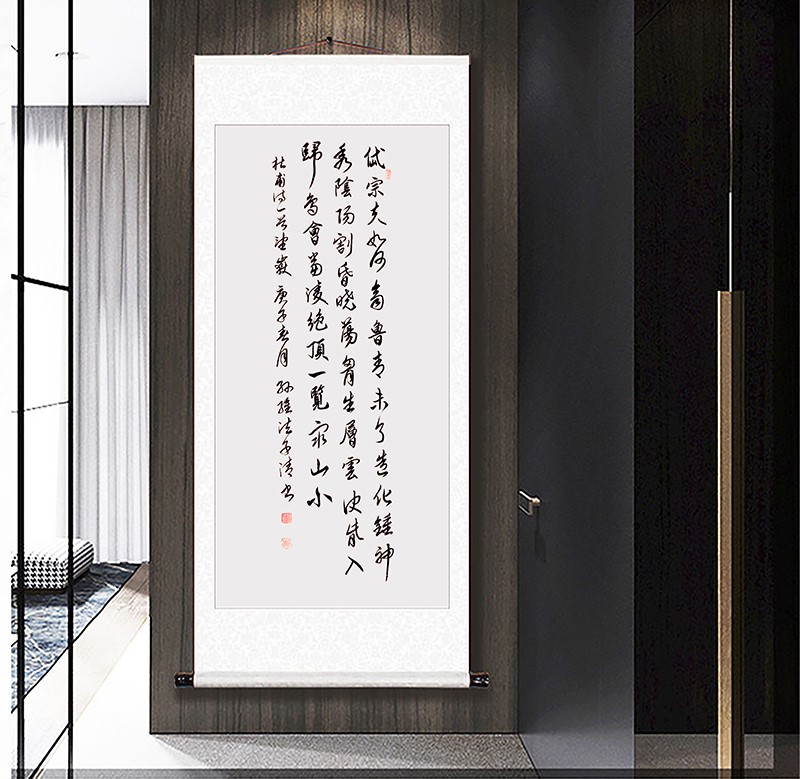 岱宗夫如何齊魯青未了造化鍾神
秀陰陽割昏曉蕩胸生層雲决眥入
歸鳥會當凌絕頂一覽眾山小
杜甫诗一首望嶽 庚子春月 孙 子清书